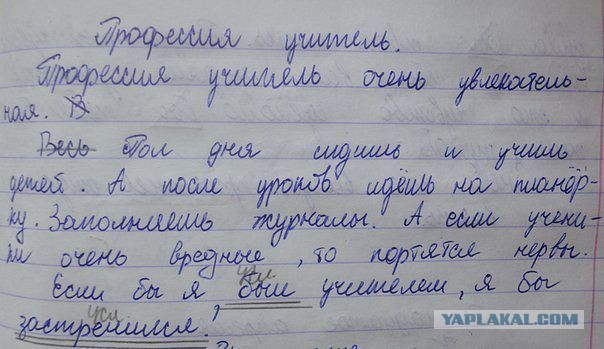 Профессия учитель.
Профессия учитель очень увлекатель-
ная. В
Весь Пол дня сидишь и учишь
детей. А после уроков идёшь на планёр-
ку. Заполняешь журналы. А если учени-
ки очень вредные, то портятся нервы.
усл.
Если бы я был учителем, я бы
усл.
застрелился.
YAPLAKAL.COM